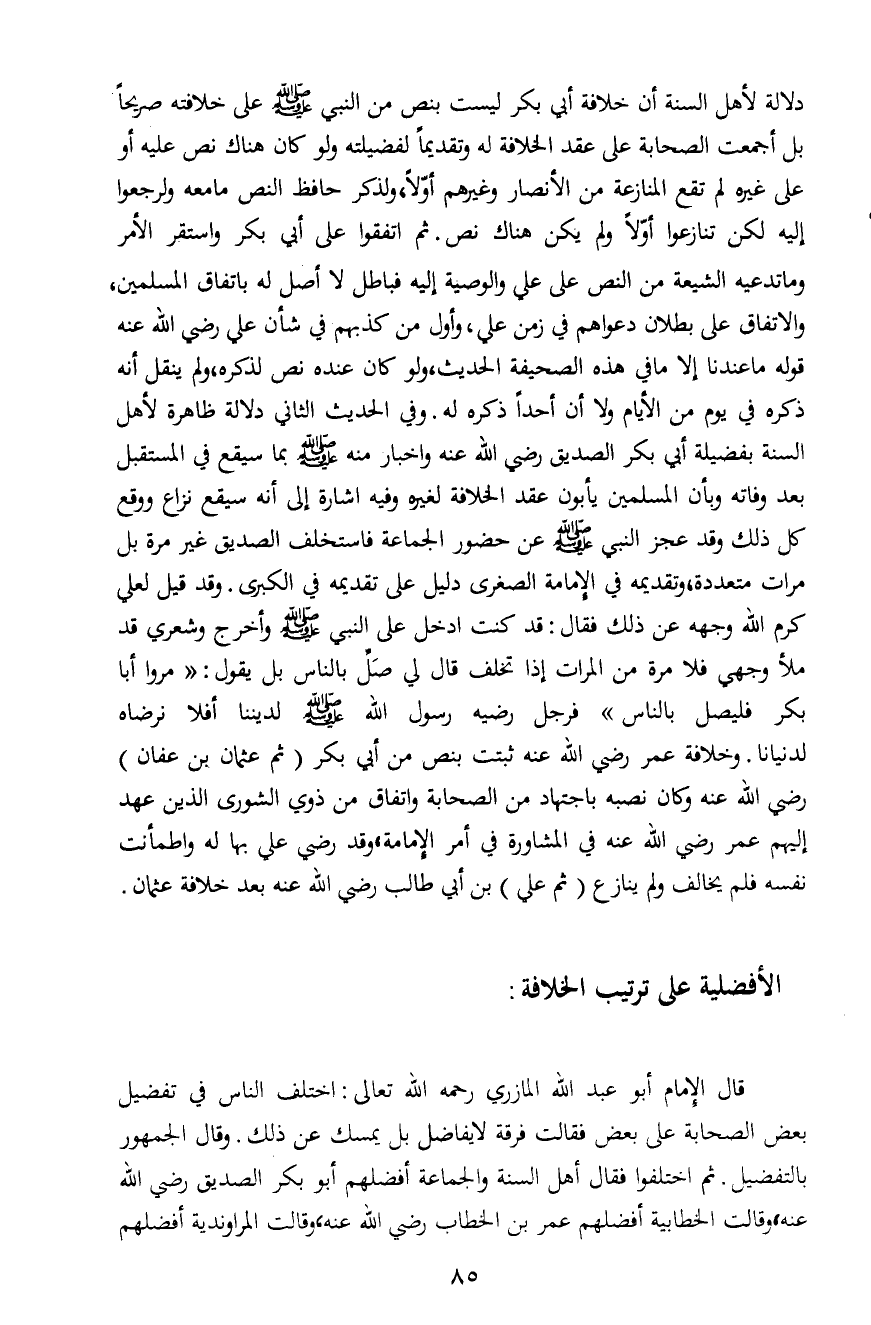 دلالة لأهل السنة أن خلافة أبي بكر ليست بنص من النبي ﷺ على خلافته صريحاً
بل أجمعت الصحابة على عقد الخلافة له وتقديماً لفضيلته ولو كان هناك نص عليه أو
على غيره لم تقع المنازعة من الأنصار وغيرهم أوّلاً، ولذكر حافظ النص مامعه ولرجعوا
إليه لكن تنازعوا أوّلاً ولم يكن هناك نص. ثم اتفقوا على أبي بكر واستقر الأمر
وماتدعيه الشيعة من النص على علي والوصية إليه فباطل لا أصل له باتفاق المسلمين،
والاتفاق على بطلان دعواهم في زمن علي، وأول من كذبهم في شأن علي رضي الله عنه
قوله ماعندنا إلا مافي هذه الصحيفة الحديث، ولو كان عنده نص لذكره، ولم ينقل أنه
ذكره في يوم من الأيام ولا أن أحداً ذكره له. وفي الحديث الثاني دلالة ظاهرة لأهل
السنة بفضيلة أبي بكر الصديق رضي الله عنه واخبار منه ﷺ بما سيقع في المستقبل
بعد وفاته وبأن المسلمين يأبون عقد الخلافة لغيره وفيه اشارة إلى أنه سيقع نزاع ووقع
كل ذلك وقد عجز النبي ﷺ عن حضور الجماعة فاستخلف الصديق غير مرة بل
مرات متعددة، وتقديمه في الإمامة الصغرى دليل على تقديمه في الكبرى. وقد قيل لعلي
كرم الله وجهه عن ذلك فقال: قد كنت ادخل على النبي ﷺ وأخرج وشعري قد
ملأ وجهي فلا مرة من المرات إذا تخلف قال لي صَلِّ بالناس بل يقول: « مروا أبا
بكر فليصل بالناس » فرجل رضيه رسول الله ﷺ لديننا أفلا نرضاه
لدنيانا. وخلافة عمر رضي الله عنه ثبتت بنص من أبي بكر ( ثم عثمان بن عفان )
رضي الله عنه وكان نصبه باجتهاد من الصحابة واتفاق من ذوي الشورى الذين عهد
إليهم عمر رضي الله عنه في المشاورة في أمر الإمامة، وقد رضي علي بها له واطمأنت
نفسه فلم يخالف ولم ينازع ( ثم علي ) بن أبي طالب رضي الله عنه بعد خلافة عثمان.
الأفضلية على ترتيب الخلافة:
قال الإمام أبو عبد الله المازري رحمه الله تعالى: اختلف الناس في تفضيل
بعض الصحابة على بعض فقالت فرقة لايفاضل بل يمسك عن ذلك. وقال الجمهور
بالتفضيل. ثم اختلفوا فقال أهل السنة والجماعة أفضلهم أبو بكر الصديق رضي الله
عنه، وقالت الخطابية أفضلهم عمر بن الخطاب رضي الله عنه، وقالت المراوندية أفضلهم
٨٥